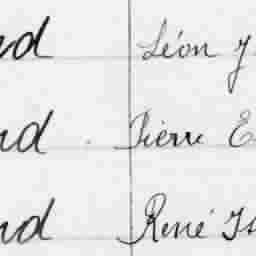 nd Léon J
nd Pierre E
nd René Is